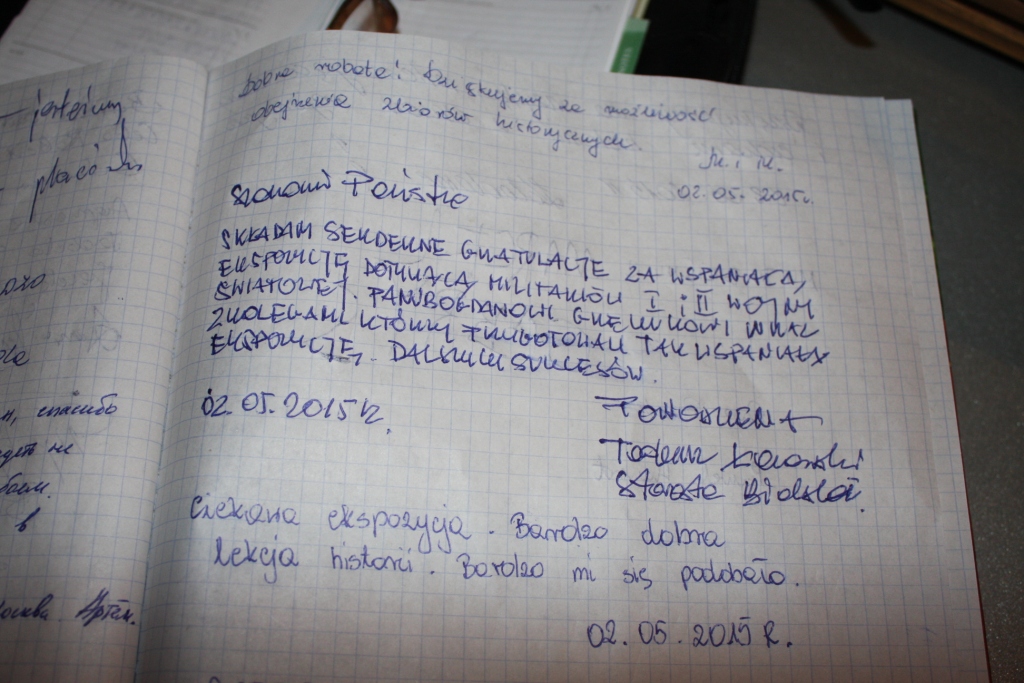 jesteśmy
placówki
спасибо
не
в
Артём.
Dobra robota! Dziękujemy za możliwość
obejrzenia zbiorów historycznych.
M. i M.
02.05.2015r.
Szanowni Państwo
SKŁADAM SERDECZNE GRATULACJE ZA WSPANIAŁĄ
EKSPOZYCJĘ DOTYCZĄCĄ MILITARIÓW I i II WOJNY
ŚWIATOWEJ. PANU BOGDANOWI WRAZ
Z KOLEGAMI KTÓRZY PRZYGOTOWALI TAK WSPANIAŁĄ
EKSPOZYCJĘ. DALSZYCH SUKCESÓW.
02.05.2015 r.
Z POWAŻANIEM
Tadeusz
Starosta Bialski.
Ciekawa ekspozycja. Bardzo dobra
lekcja historii. Bardzo mi się podobało.
02.05.2015 R.